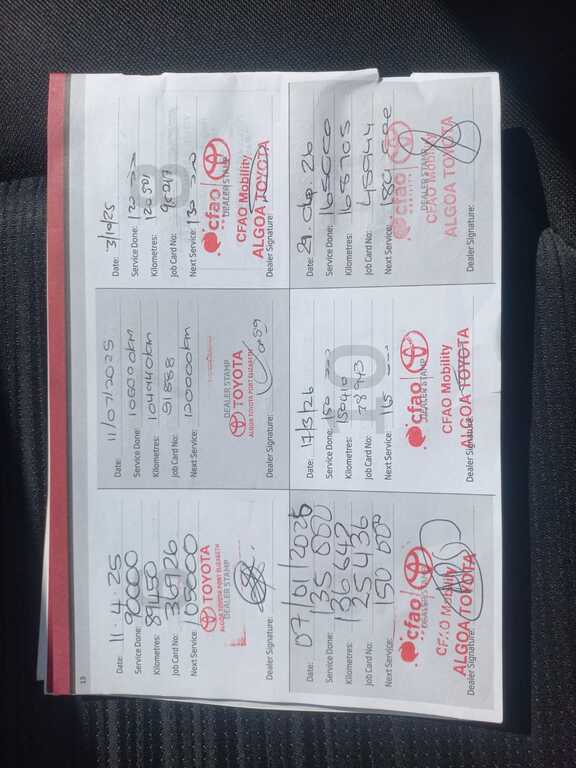 13
Date: 11.4.25
Service Done: 90000
Kilometres: 89450
Job Card No:
Next Service: 105000
TOYOTA
ALGOA TOYOTA PORT ELIZABETH
DEALER STAMP
Dealer Signature:
Date: 11/07/2025
Service Done: 105000KM
Kilometres: 104040KM
Job Card No: 91888
Next Service: 120000KM
DEALER STAMP
TOYOTA
ALGOA TOYOTA PORT ELIZABETH
Dealer Signature:
Date:
Service Done: 120
Kilometres:
Job Card No:
Next Service: 130
cfao
DEALER STAMP
CFAO Mobility
ALGOA TOYOTA
Dealer Signature:
Date: 07/01/2026
Service Done: 135 000
Kilometres: 136 647
Job Card No: 25436
Next Service: 150 000
cfao
DEALER STAMP
CFAO Mobility
ALGOA TOYOTA
Dealer Signature:
10
Date: 17/3/26
Service Done: 150
Kilometres: 150410
Job Card No:
Next Service: 165
cfao
DEALER STAMP
CFAO Mobility
ALGOA TOYOTA
Dealer Signature:
Date:
Service Done: 165000
Kilometres: 165705
Job Card No:
Next Service: 180 000
cfao
MOBILITY
DEALER STAMP
CFAO Mobility
ALGOA TOYOTA
Dealer Signature: